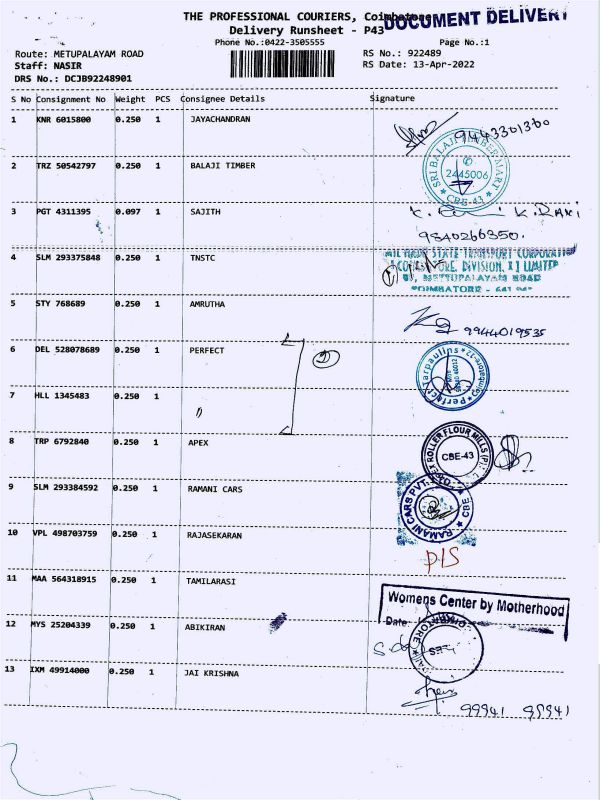 THE PROFESSIONAL COURIERS, Coimbatore
DOCUMENT DELIVERY
Delivery Runsheet - P43
Phone No.:0422-3505555
Page No.:1
Route: METUPALAYAM ROAD
RS No.: 922489
Staff: NASIR
RS Date: 13-Apr-2022
DRS No.: DCJB92248901
S No Consignment No Weight PCS Consignee Details Signature
1 KNR 6015800 0.250 1 JAYACHANDRAN
9443301360
2 TRZ 50542797 0.250 1 BALAJI TIMBER
SRI BALAJI TIMBER MART
2445006
CBE-43
3 PGT 4311395 0.097 1 SAJITH
K. RAKI
9840266350.
4 SLM 293375848 0.250 1 TNSTC
STATE TRANSPORT CORPORATION
DIVISION, I] LIMITED
METTUPALAYAM ROAD
COIMBATORE - 641
5 STY 768689 0.250 1 AMRUTHA
9944019535
6 DEL 528078689 0.250 1 PERFECT
2
Perfect Tarpaulins
7 HLL 1345483 0.250 1 "
8 TRP 6792840 0.250 1 APEX
ROLLER FLOUR MILLS (P)
CBE-43
9 SLM 293384592 0.250 1 RAMANI CARS
RAMANI CARS PVT.
CBE
10 VPL 498703759 0.250 1 RAJASEKARAN
P/S
11 MAA 564318915 0.250 1 TAMILARASI
Womens Center by Motherhood
Date:
12 MYS 25204339 0.250 1 ABIKIRAN
13 IXM 49914000 0.250 1 JAI KRISHNA
99941 99941